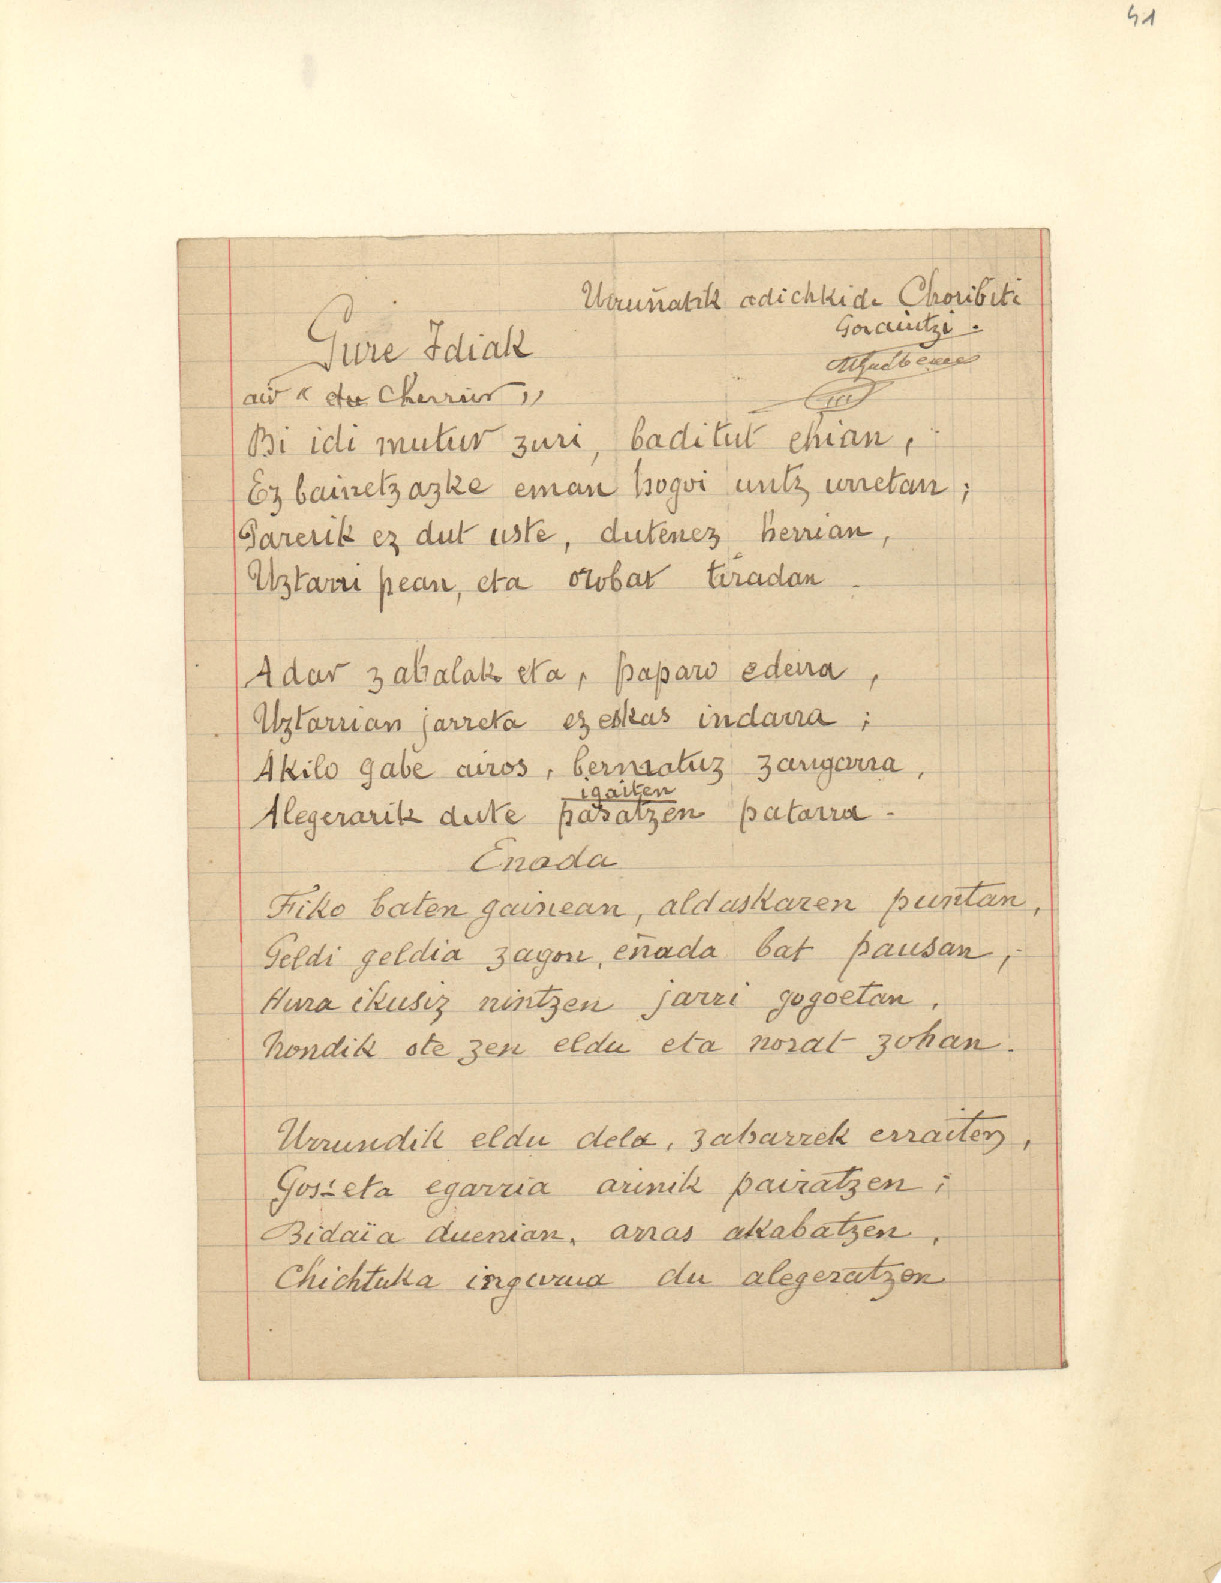 41
Urruñatik adichkide Choribiti
Goraintzi.
Gure Idiak
air « du Cherrür »
Bi idi mutur zuri, baditut ehian,
Ez bainetzazke eman hogoi untz urretan;
Parerik ez dut uste, dutenez herrian,
Uztarri pean, eta orobat tiradan.
Adar zabalak eta, paparo ederra,
Uztarrian jarreta ez eskas indarra;
Akilo gabe airos, bermatuz zangarra,
igaiten
Alegerarik dute pasatzen patarra.
Enada
Fiko baten gainean, aldaskaren puntan,
Geldi geldia zagon, eñada bat pausan;
Hura ikusiz nintzen jarri gogoetan,
Nondik ote zen eldu eta norat zohan.
Urrundik eldu dela, zaharrek erraiten,
Gos-eta egarria arinik pairatzen;
Bidaïa duenian, arras akabatzen,
Chichtuka ingurua du alegeratzen